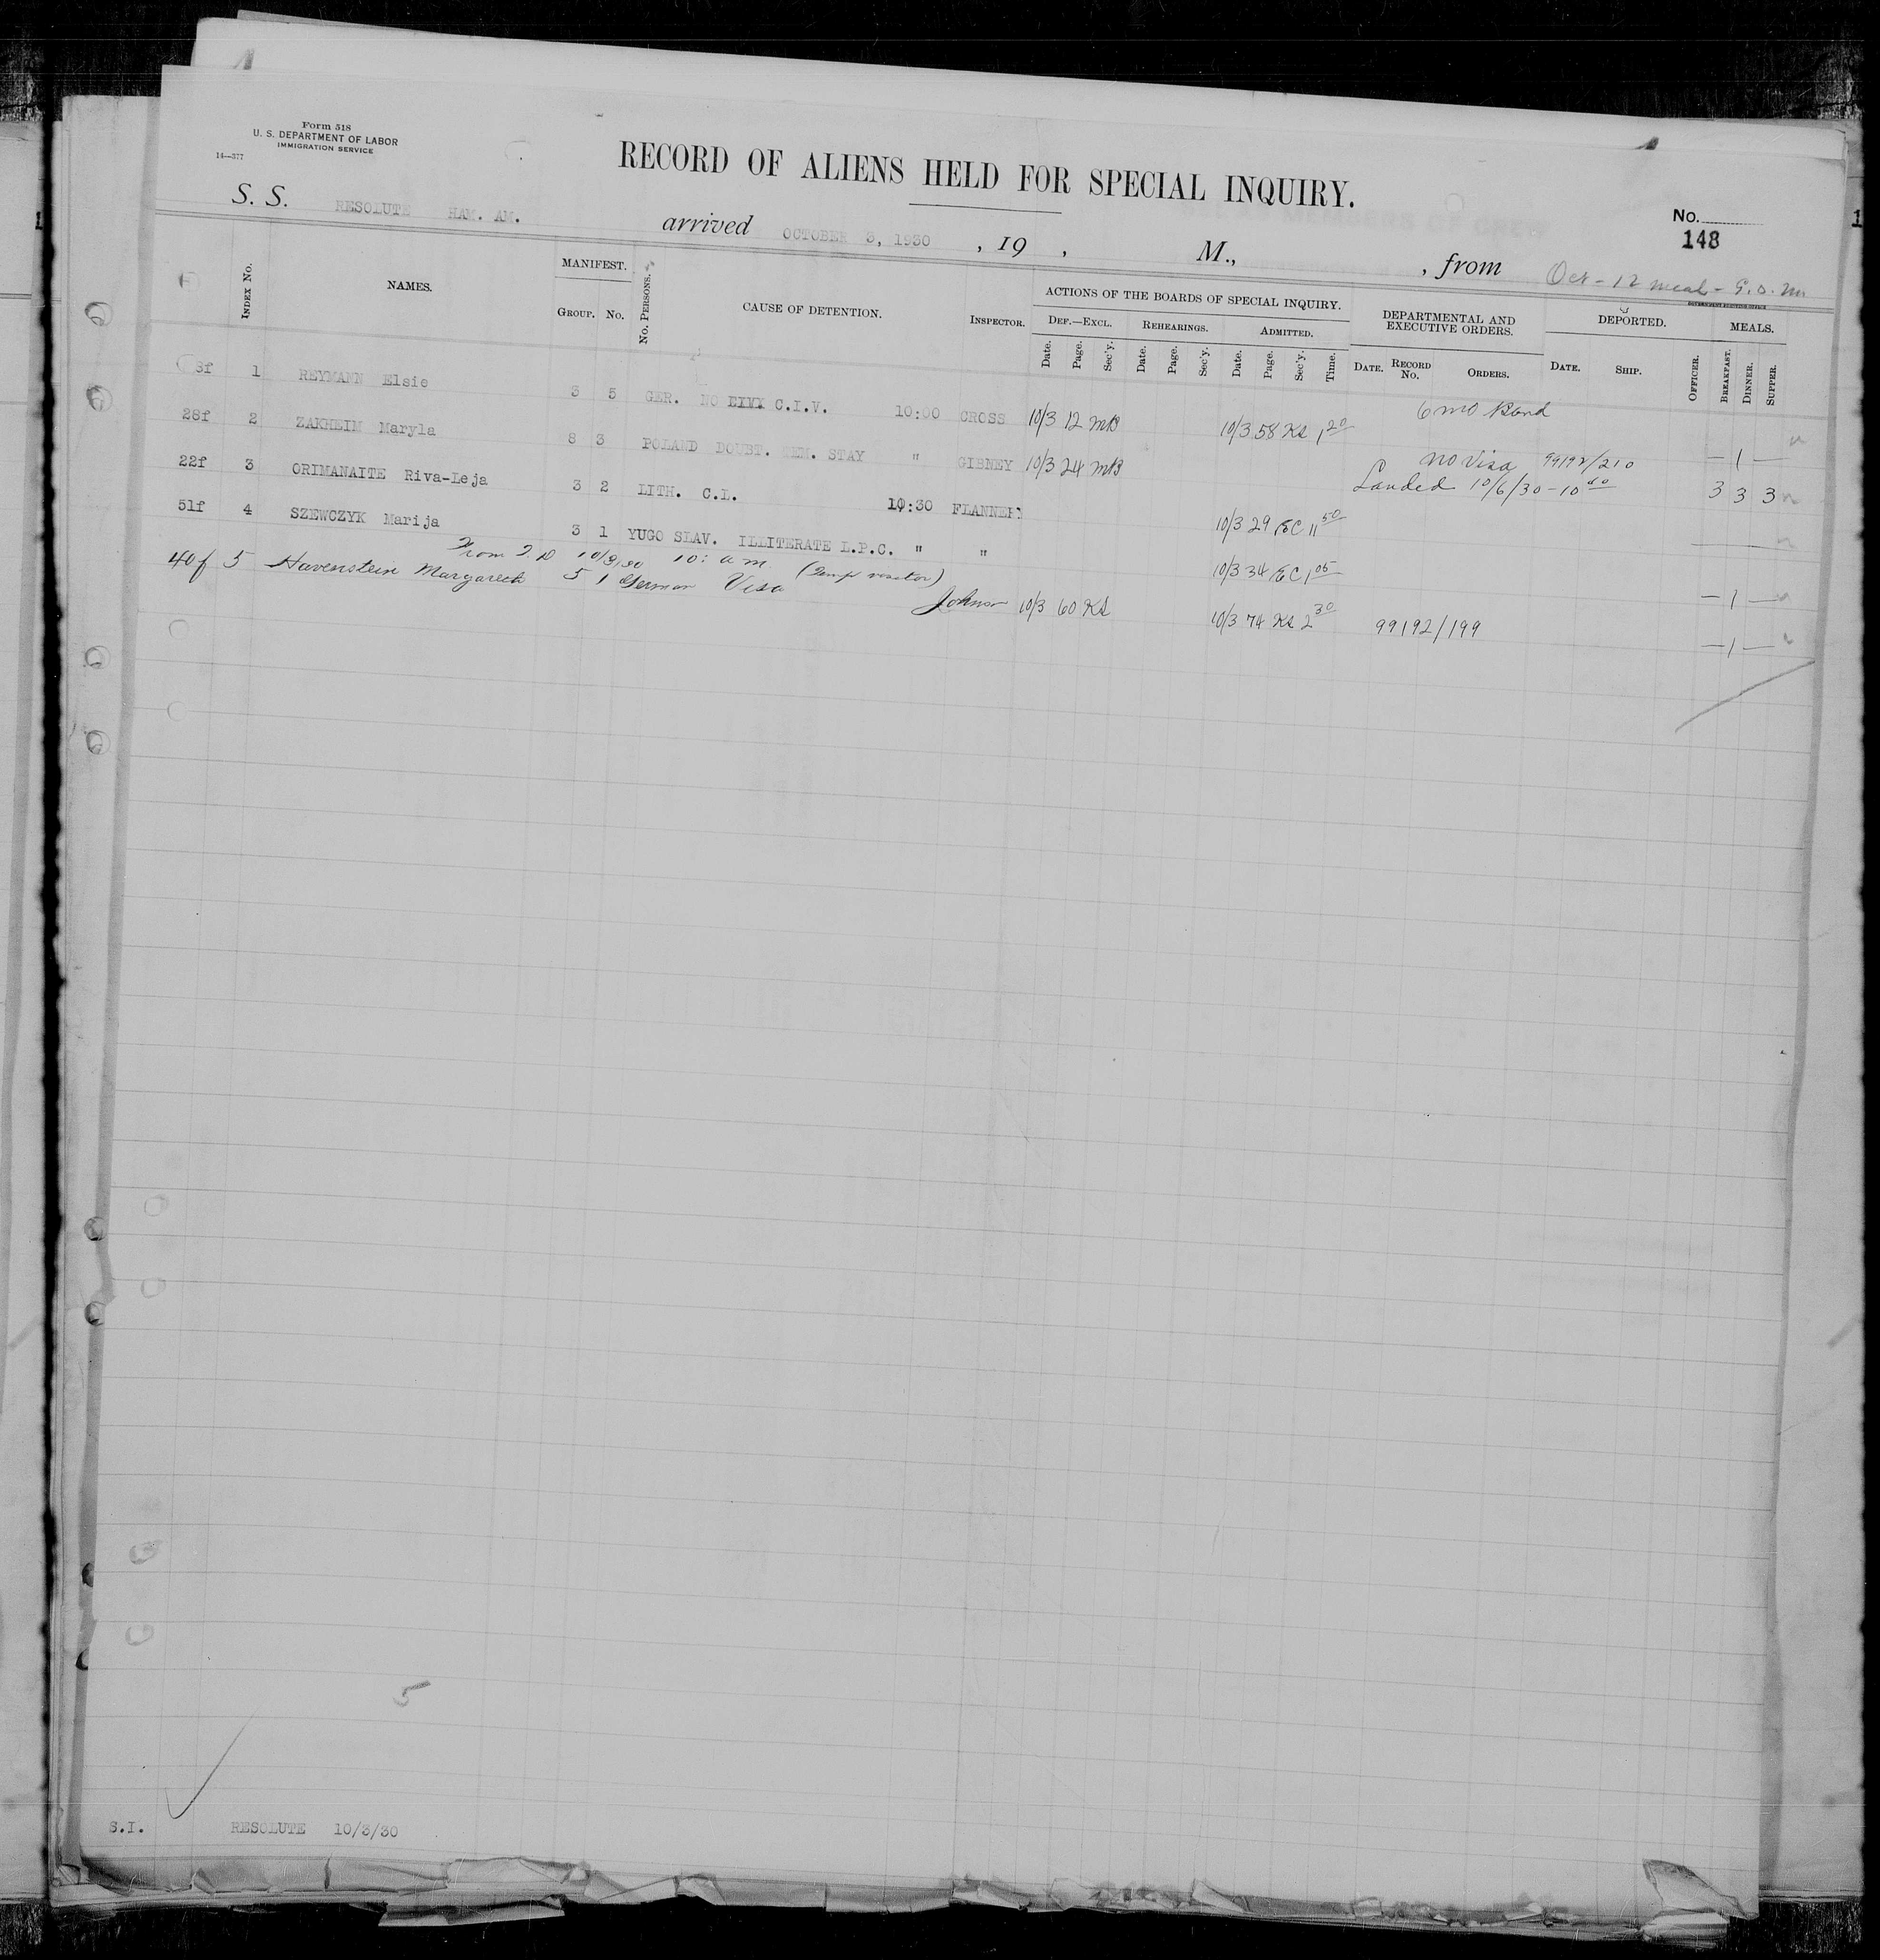 Form 518
U. S. DEPARTMENT OF LABOR
IMMIGRATION SERVICE
14—377
RECORD OF ALIENS HELD FOR SPECIAL INQUIRY.
No.
148
S. S. RESOLUTE HAM. AM. arrived OCTOBER 3, 1930 , 19 , M., , from
Oct - 12 meal - G.O.M.
INDEX No. NAMES. MANIFEST. GROUP. No. No. PERSONS. CAUSE OF DETENTION. INSPECTOR. ACTIONS OF THE BOARDS OF SPECIAL INQUIRY. DEPARTMENTAL AND EXECUTIVE ORDERS. DEPORTED. MEALS.
DEF.—EXCL. REHEARINGS. ADMITTED.
Date. Page. Sec'y. Date. Page. Sec'y. Date. Page. Sec'y. Time. DATE. RECORD No. ORDERS. DATE. SHIP. OFFICER. BREAKFAST. DINNER. SUPPER.
3f 1 REYMANN Elsie 3 5 GER. NO C.I.V. 10:00 CROSS 10/3 12 MB 10/3 58 KS 1 20 6 mo Bond — 1 —
28f 2 ZAKHEIM Maryla 8 3 POLAND DOUBT. TEM. STAY " GIBNEY 10/3 24 MB no Visa 99192/210 Landed 10/6/30 - 10 40 3 3 3
22f 3 ORIMANAITE Riva-Leja 3 2 LITH. C.L. 10:30 FLANNERY 10/3 29 EC 11 50
51f 4 SZEWCZYK Marija 3 1 YUGO SLAV. ILLITERATE L.P.C. " " 10/3 34 EC 1 05 — 1 —
From T.D. 10/3/30 10: a m. (Temp visitor)
40f 5 Havenstein Margarect 5 1 German Visa Johnson 10/3 60 KS 10/3 74 KS 2 30 99192/199 — 1 —
5
S.I. RESOLUTE 10/3/30